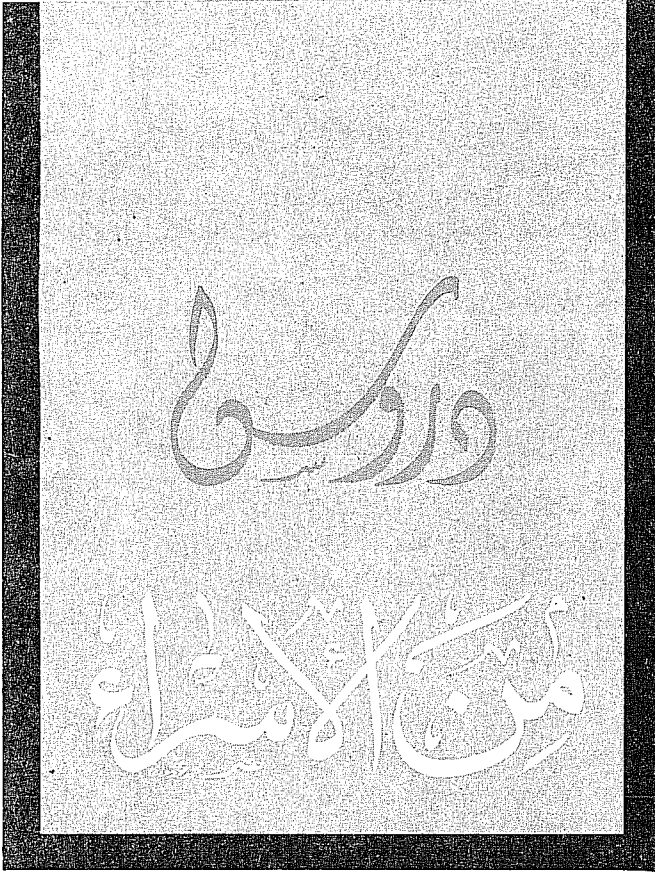 دروس
مِنَ الإِسْرَاء